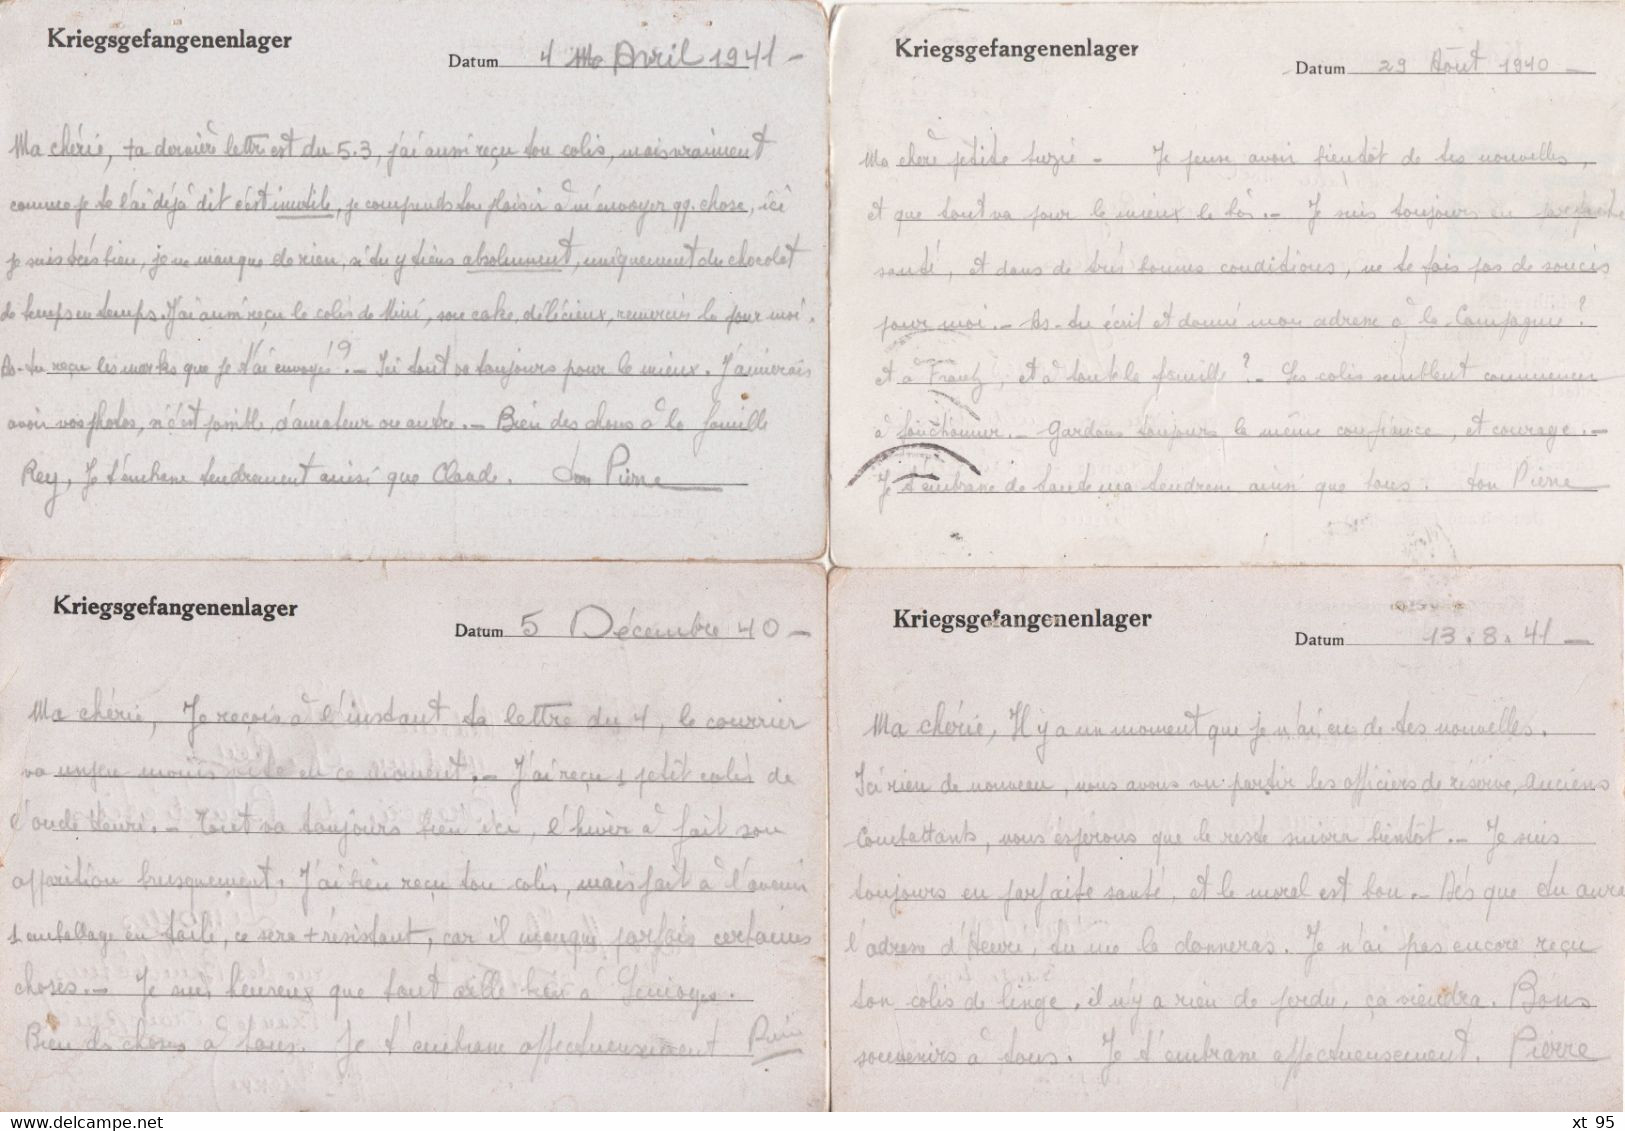 Kriegsgefangenenlager
Datum 4 Avril 1941 –
Ma chérie, ta dernière lettre est du 5.3, j'ai aussi reçu ton colis, mais vraiment
comme je te l'ai déjà dit c'est inutile, je comprends ton plaisir à m'envoyer qq. chose, ici
je suis très bien, je ne manque de rien, si tu y tiens absolument, uniquement du chocolat
de temps en temps. J'ai aussi reçu le colis de Mimi, son cake, délicieux, remercies la pour moi.
As-tu reçu les marks que je t'ai envoyés ? – Ici tout va toujours pour le mieux. J'aimerais
avoir vos photos, si c'est possible, d'amateur ou autre. – Bien des choses à la famille
Rey, Je t'embrasse tendrement ainsi que Claude. Ton Pierre
Kriegsgefangenenlager
Datum 29 Août 1940 –
Ma chère petite Suzie – Je pense avoir bientôt de tes nouvelles,
et que tout va pour le mieux là-bas. – Je suis toujours en parfaite
santé, et dans de très bonnes conditions, ne te fais pas de soucis
pour moi. – As-tu écrit et donné mon adresse à la Compagnie ?
et à Frantz, et à toute la famille ? – Les colis semblent commencer
à . – Gardons toujours la même confiance, et courage. –
Je t'embrasse de toute ma tendresse ainsi que tous. ton Pierre
Kriegsgefangenenlager
Datum 5 Décembre 40 –
Ma chérie, Je reçois à l'instant ta lettre du 4, le courrier
va un peu moins vite en ce moment. – J'ai reçu 1 petit colis de
l'oncle Henri. – Tout va toujours bien ici, l'hiver a fait son
apparition brusquement. J'ai bien reçu ton colis, mais fait à l'avenir
1 emballage en toile, ce sera + résistant, car il manque parfois certaines
choses. – Je suis heureux que tout aille bien à Limoges.
Bien des choses à tous. Je t'embrasse affectueusement Pierre
Kriegsgefangenenlager
Datum 13.8.41 –
Ma chérie, Il y a un moment que je n'ai eu de tes nouvelles.
Ici rien de nouveau, nous avons vu partir les officiers de réserve, anciens
Combattants, nous espérons que le reste suivra bientôt. – Je suis
toujours en parfaite santé, et le moral est bon. – Dès que tu auras
l'adresse d'Henri, tu me la donneras. Je n'ai pas encore reçu
ton colis de linge, il n'y a rien de perdu, ça viendra. Bons
souvenirs à tous. Je t'embrasse affectueusement. Pierre
xt 95